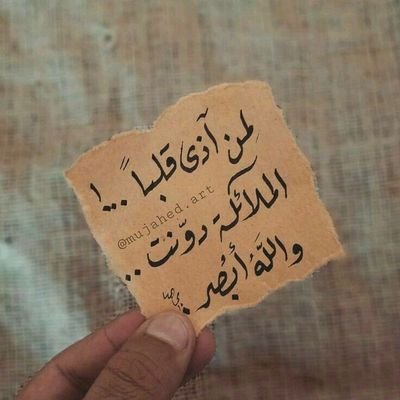 لِمن آذى قلباً...!
الملائكة دوّنت..
واللهُ أبْصر.
@mujahed.art